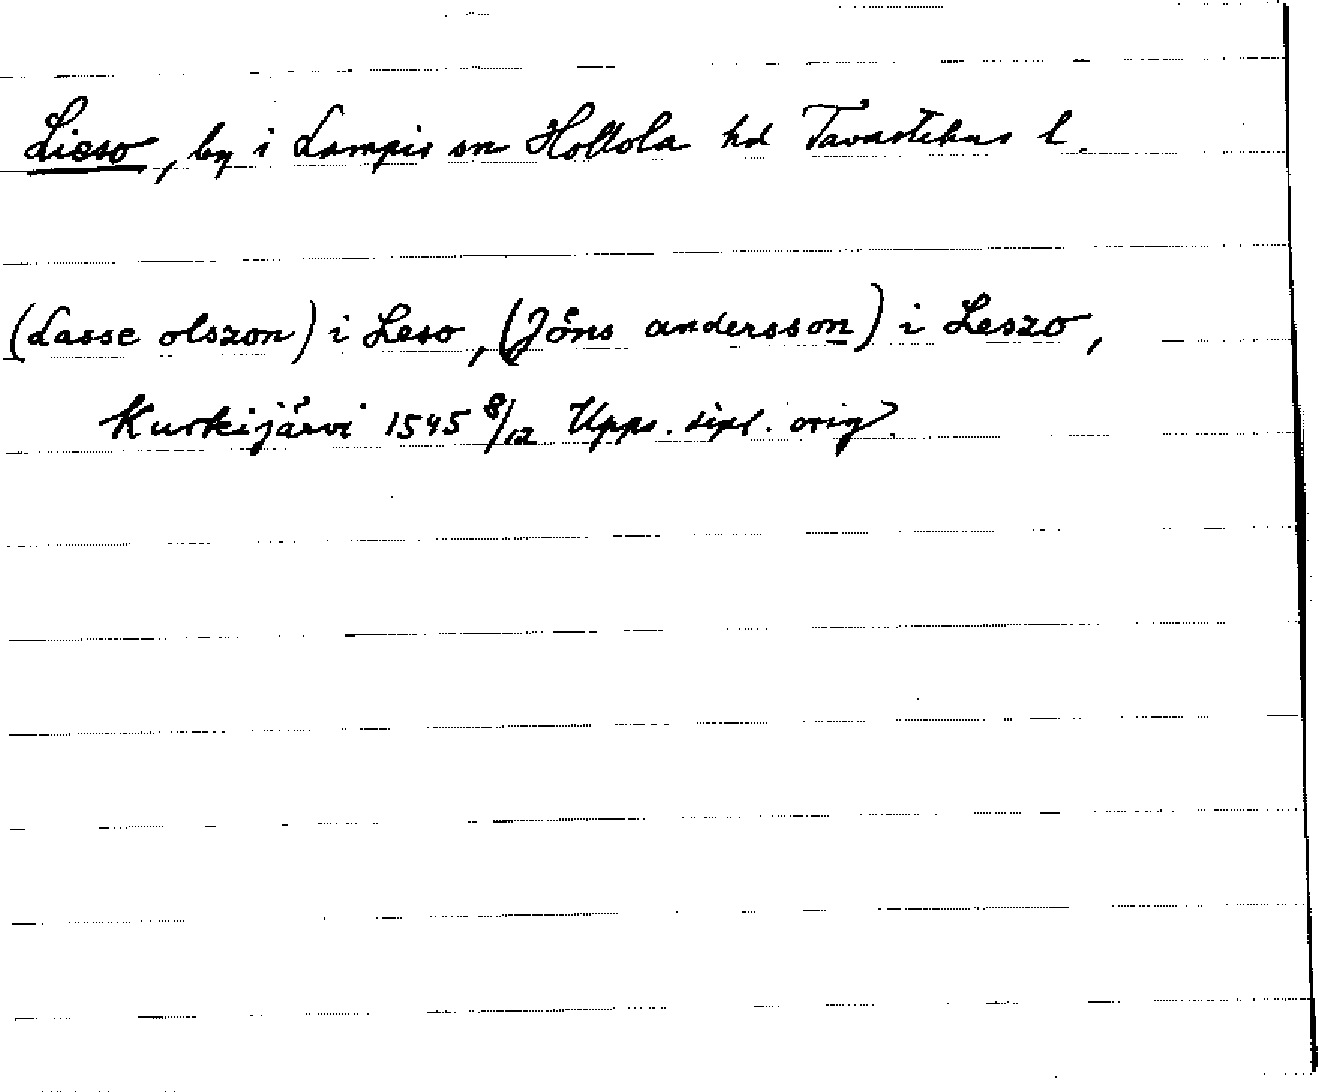 Lieso, by i Lampis sn Hollola hd Tavastehus l.
(Lasse olszon) i Leso, (Jöns andersson) i Leszo,
Kurkijärvi 1545 8/12 Upps. dipl. orig.